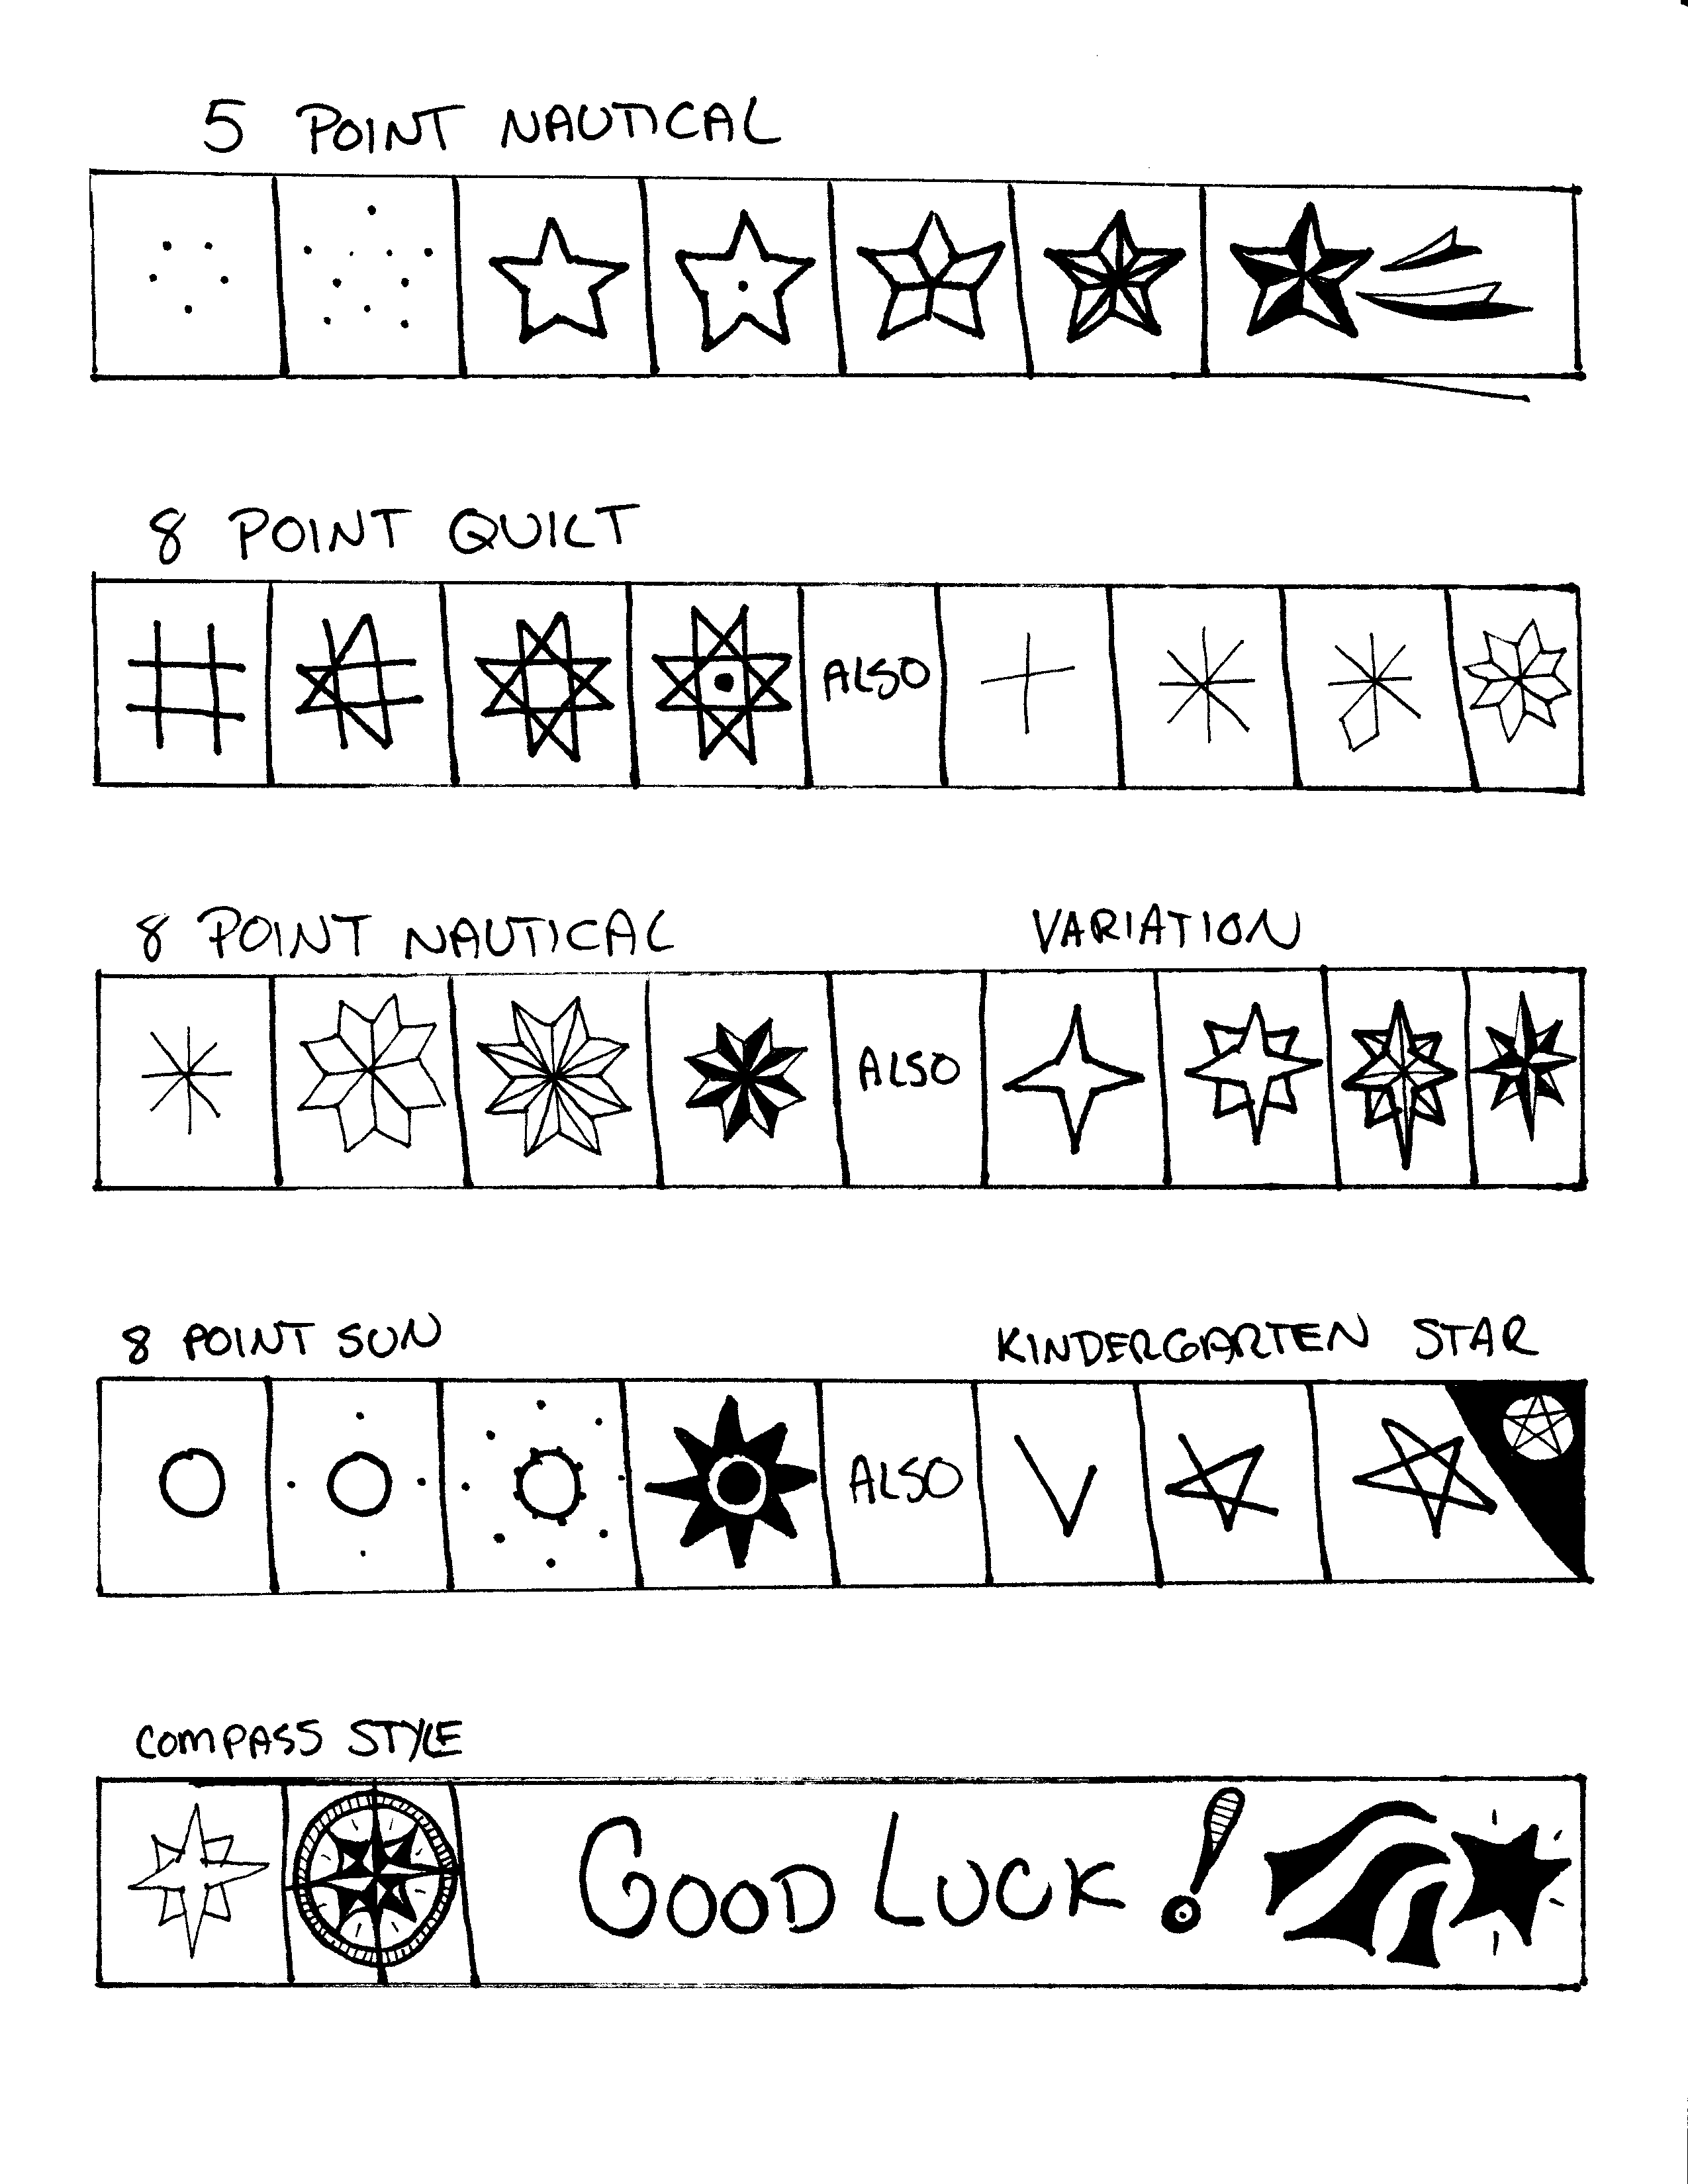 5 POINT NAUTICAL
8 POINT QUILT
ALSO
8 POINT NAUTICAL VARIATION
ALSO
8 POINT SUN KINDERGARTEN STAR
ALSO
COMPASS STYLE
GOOD LUCK!